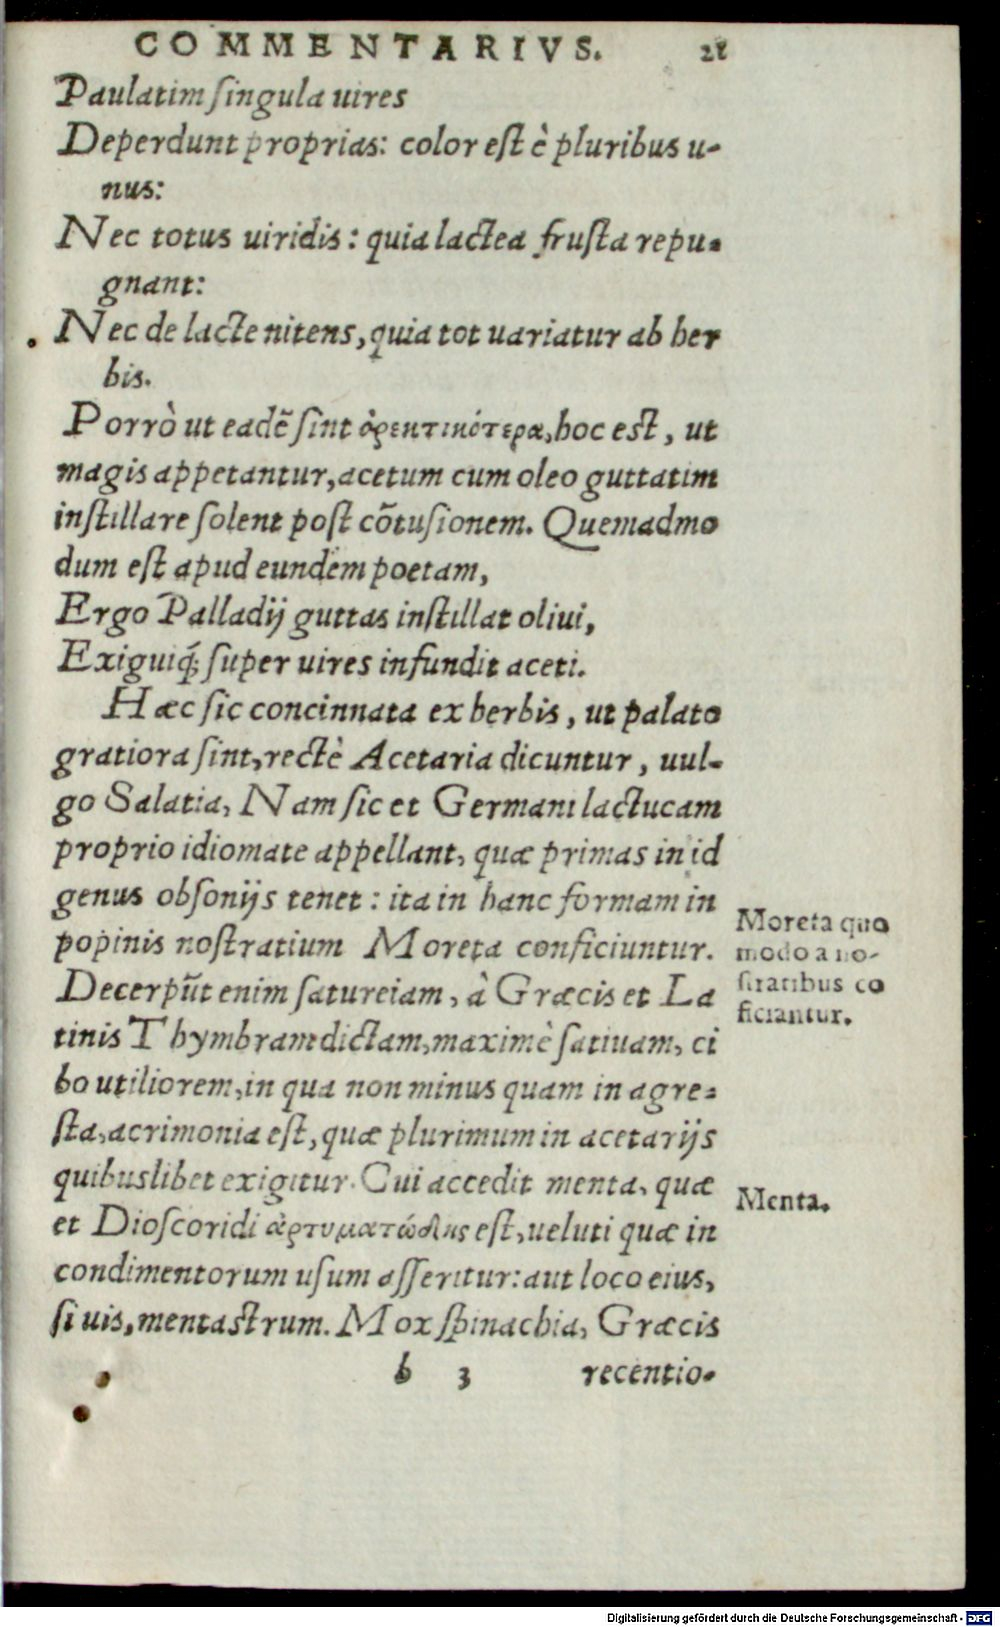 COMMENTARIVS. 21
Paulatim ſingula uires
Deperdunt proprias: color eſt è pluribus u-
nus:
Nec totus uiridis: quia lactea fruſta repu-
gnant:
Nec de lacte nitens, quia tot uariatur ab her
bis.
Porrò ut eadẽ ſint ὀρεκτικότερα, hoc eſt, ut
magis appetantur, acetum cum oleo guttatim
inſtillare ſolent poſt cõtuſionem. Quemadmo
dum eſt apud eundem poetam,
Ergo Palladij guttas inſtillat oliui,
Exiguiq́; ſuper uires infundit aceti.
Hæc ſic concinnata ex herbis, ut palato
gratiora ſint, rectè Acetaria dicuntur, uul-
go Salatia, Nam ſic et Germani lactucam
proprio idiomate appellant, quæ primas in id
genus obſonijs tenet: ita in hanc formam in
popinis noſtratium Moreta conficiuntur.
Moreta quo
modo a no-
ſtratibus co
ficiantur.
Decerpũt enim ſatureiam, à Græcis et La
tinis Thymbram dictam, maximè ſatiuam, ci
bo utiliorem, in qua non minus quam in agre-
ſta, acrimonia eſt, quæ plurimum in acetarijs
quibuslibet exigitur. Cui accedit menta, quæ
Menta.
et Dioſcoridi ἀρτυματώδης eſt, ueluti quæ in
condimentorum uſum aſſeritur: aut loco eius,
ſi uis, mentaſtrum. Mox ſpinachia, Græcis
b 3 recentio-
Digitalisierung gefördert durch die Deutsche Forschungsgemeinschaft - DFG